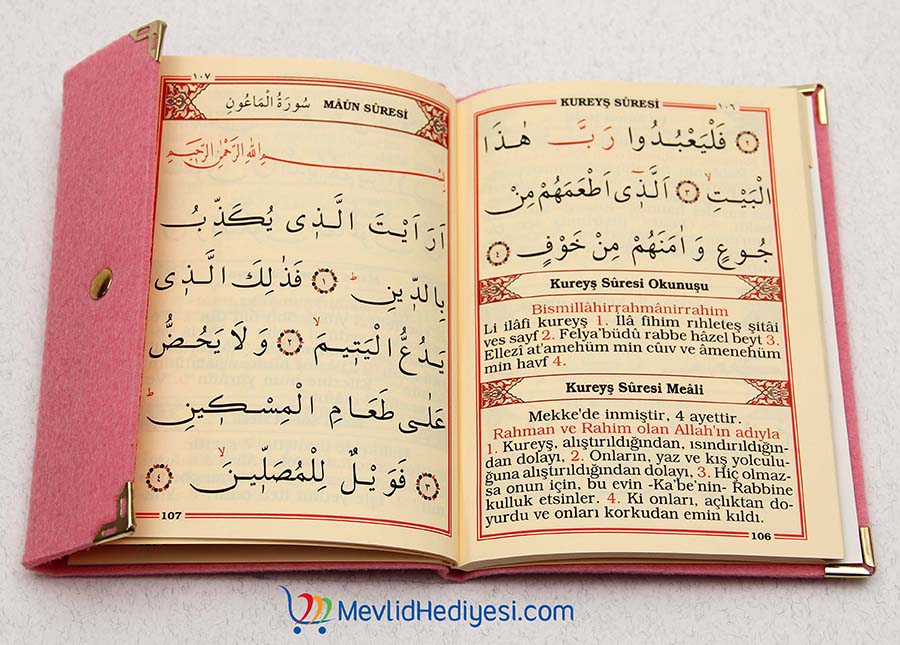 KUREYŞ SÛRESİ ١٠٦
٢ فَلْيَعْبُدُوا رَبَّ هٰذَا
الْبَيْتِۙ ٣ اَلَّذ۪ٓي اَطْعَمَهُمْ مِنْ
جُوعٍ وَاٰمَنَهُمْ مِنْ خَوْفٍ ٤
Kureyş Sûresi Okunuşu
Bismillâhirrahmânirrahim
Li ilâfi kureyş 1. İlâ fihim rıhleteş şitâi
ves sayf 2. Felya'büdû rabbe hâzel beyt 3.
Ellezî at'amehüm min cûıv ve âmenehüm
min havf 4.
Kureyş Sûresi Meâli
Mekke'de inmiştir, 4 ayettir.
Rahman ve Rahim olan Allah'ın adıyla
1. Kureyş, alıştırıldığından, ısındırıldığın-
dan dolayı, 2. Onların, yaz ve kış yolculu-
ğuna alıştırıldığından dolayı, 3. Hiç olmaz-
sa onun için, bu evin -Ka'be'nin- Rabbine
kulluk etsinler. 4. Ki onları, açlıktan do-
yurdu ve onları korkudan emin kıldı.
106
١٠٧
سُورَةُ الْمَاعُونِ MÂÛN SÛRESİ
بِسْمِ اللهِ الرَّحْمٰنِ الرَّحِيمِ
اَرَاَيْتَ الَّذ۪ي يُكَذِّبُ
بِالدّ۪ينِۜ ١ فَذٰلِكَ الَّذ۪ي
يَدُعُّ الْيَت۪يمَۙ ٢ وَلَا يَحُضُّ
عَلٰى طَعَامِ الْمِسْك۪ينِۜ
٣ فَوَيْلٌ لِلْمُصَلّ۪ينَۙ ٤
107
MevlidHediyesi.com